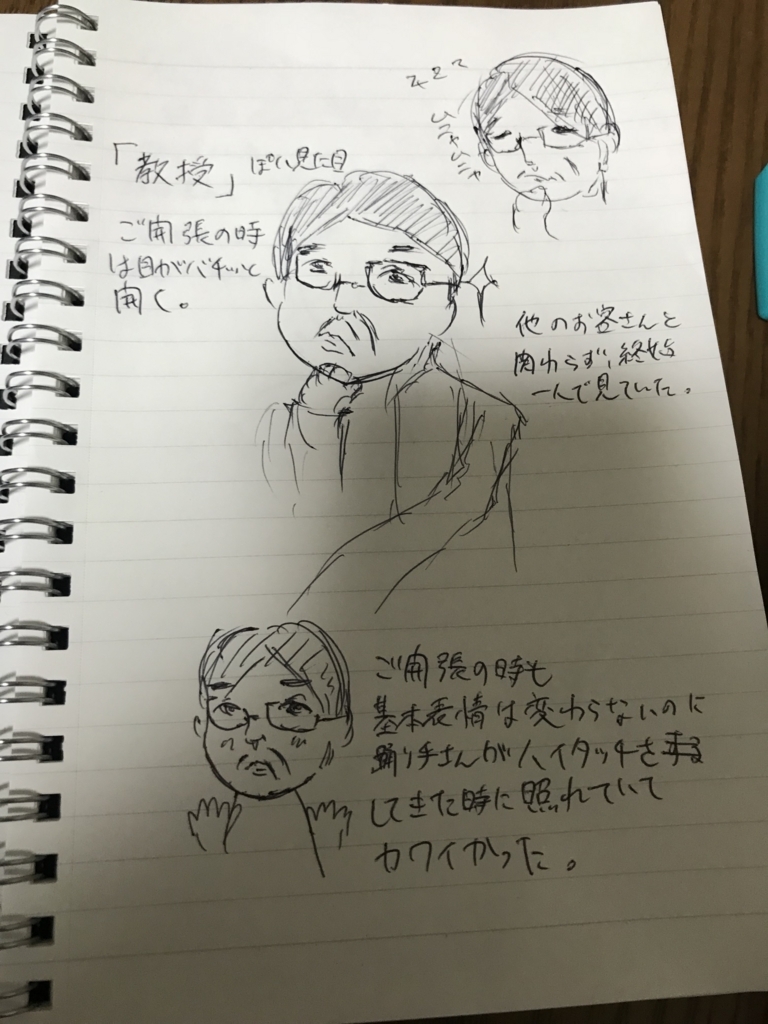 zzz
ムニャムニャ
「教授」ぽい見た目
ご開張の時
は目がパチッと
開く。
他のお客さんと
関わらず、終始
一人で見ていた。
ご開張の時も
基本表情は変わらないのに
踊り子さんがハイタッチを
してきた時に照れていて
カワイかった。